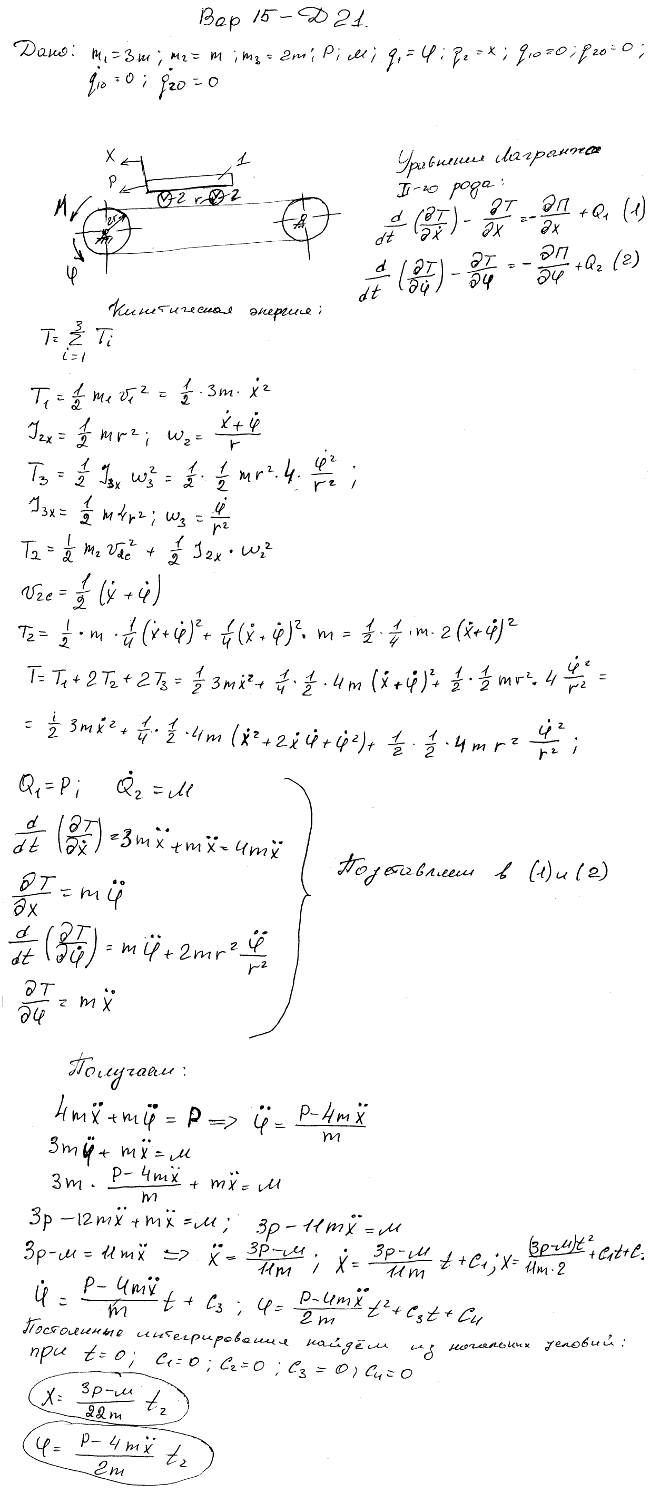 Вар 15 – Д 21.
Дано: m₁ = 3m; m₂ = m; m₃ = 2m; P; M; q₁ = φ; q₂ = x; q₁₀ = 0; q₂₀ = 0;
q̇₁₀ = 0; q̇₂₀ = 0
X
P
1
2 r 2
M
2r
φ
Уравнения Лагранжа
II-го рода:
d/dt (∂T/∂ẋ) – ∂T/∂x = –∂П/∂x + Q₁ (1)
d/dt (∂T/∂φ̇) – ∂T/∂φ = –∂П/∂φ + Q₂ (2)
Кинетическая энергия:
T = Σ Tᵢ
3
i=1
T₁ = 1/2 m₁ v₁² = 1/2 · 3m · ẋ²
J₂ₓ = 1/2 mr²; ω₂ = (ẋ + φ̇)/r
T₃ = 1/2 J₃ₓ ω₃² = 1/2 · 1/2 mr² · 4 · φ̇²/r²;
J₃ₓ = 1/2 m4r²; ω₃ = φ̇/r²
T₂ = 1/2 m₂ v₂c² + 1/2 J₂ₓ · ω₂²
v₂c = 1/2 (ẋ + φ̇)
T₂ = 1/2 · m · 1/4 (ẋ + φ̇)² + 1/4 (ẋ + φ̇)² · m = 1/2 · 1/4 · m · 2(ẋ + φ̇)²
T = T₁ + 2T₂ + 2T₃ = 1/2 3mẋ² + 1/4 · 1/2 · 4m (ẋ + φ̇)² + 1/2 · 1/2 mr² · 4 φ̇²/r² =
= 1/2 3mẋ² + 1/4 · 1/2 · 4m (ẋ² + 2ẋφ̇ + φ̇²) + 1/2 · 1/2 · 4mr² φ̇²/r²;
Q₁ = P; Q̇₂ = M
d/dt (∂T/∂ẋ) = 3mẍ + mẍ = 4mẍ
∂T/∂x = mφ̈
d/dt (∂T/∂φ̇) = mφ̈ + 2mr² φ̈/r²
∂T/∂φ = mẍ
Подставляем в (1) и (2)
Получаем:
4mẍ + mφ̈ = P => φ̈ = (P – 4mẍ)/m
3mφ̈ + mẍ = M
3m · (P – 4mẍ)/m + mẍ = M
3p – 12mẍ + mẍ = M; 3p – 11mẍ = M
3p – M = 11mẍ => ẍ = (3p – M)/11m; ẋ = (3p – M)/11m t + C₁; x = (3p – M)t²/11m·2 + C₁t + C.
φ̇ = (P – 4mẍ)/m t + C₃; φ = (P – 4mẍ)/2m t² + C₃t + C₄
Постоянные интегрирования найдём из начальных условий:
при t = 0; C₁ = 0; C₂ = 0; C₃ = 0; C₄ = 0
X = (3p – M)/22m t₂
φ = (P – 4mẍ)/2m t₂